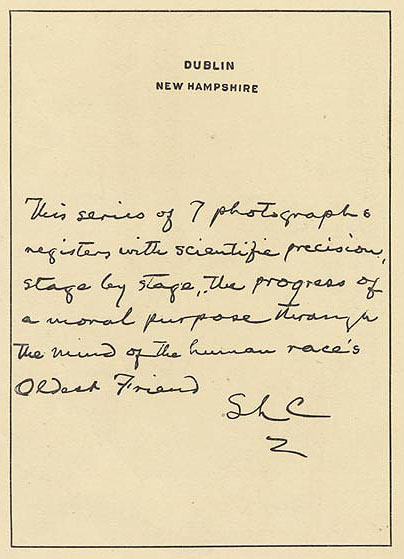 DUBLIN
NEW HAMPSHIRE
This series of 7 photographs
registers with scientific precision,
stage by stage, the progress of
a moral purpose through
the mind of the human race's
Oldest Friend
SLC